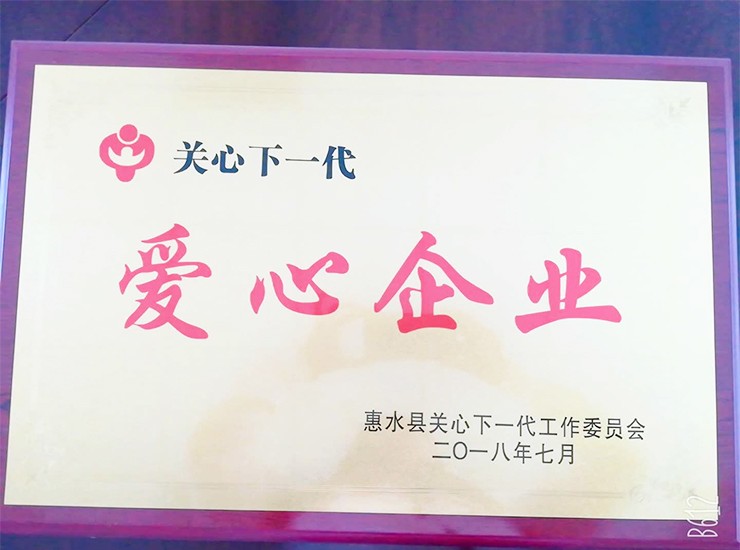 关心下一代
爱心企业
惠水县关心下一代工作委员会
二〇一八年七月
B612